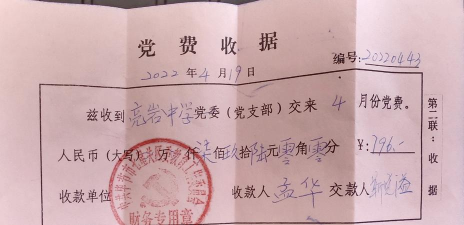 党费收据
编号:20220443
2022年4月19日
兹收到亮岩中学党委(党支部)交来 4 月份党费。
人民币(大写) 万 仟柒佰玖拾陆元零角零分 ¥:796.-
收款单位 收款人 孟华 交款人
财务专用章
第二联:收据